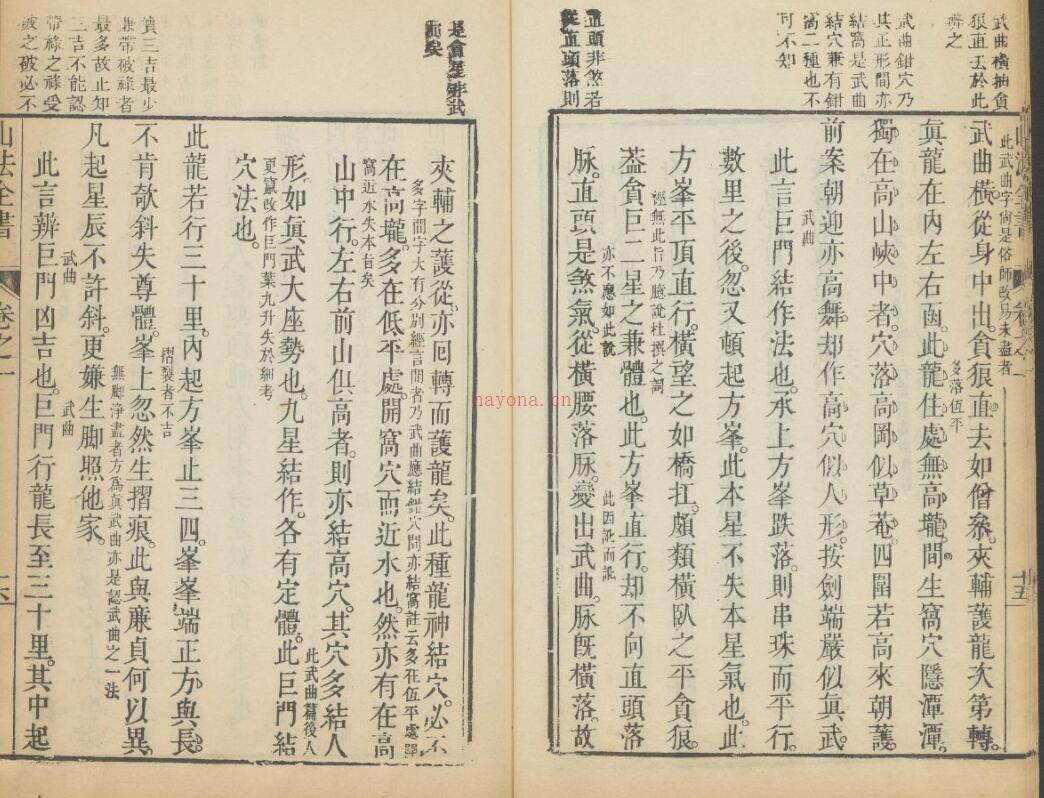 武曲橫抽貪
狼直去於此
辨之
武曲鉗穴乃
其正形間亦
結窩是武曲
結穴兼有鉗
窩二種也不
可不知
直頭非煞若
從直頭落則
此武曲字尚是俗師改易未盡者
武曲橫從身中出貪狼直去如僧參夾輔護龍次第轉
多落低平
眞龍在內左右函此龍住處無高壠間生窩穴隱潭潭
獨在高山峽中者穴落高岡似草菴四圍若高來朝護
前案朝迎亦高舞却作高穴似人形按劍端嚴似眞武
武曲
此言巨門結作法也承上方峯跌落則串珠而平行
數里之後忽又頓起方峯此本星不失本星氣也此
方峯平頂直行橫望之如橋扛頗類橫臥之平貪狼
經無此旨乃臆說杜撰之詞
蓋貪巨二星之兼體也此方峯直行却不向直頭落
亦不應如此說
此因訛而訛
脉直頭是煞氣從橫腰落脉變出武曲脉旣橫落故
十五
是貪星非武
曲矣
實三吉最少
兼帶破祿者
最多故止知
三吉不能認
帶祿之祿受
破之破必不
夾輔之護從亦囘轉而護龍矣此種龍神結穴必不
多字間字大有分別經言間者乃武曲應結鉗穴間亦結窩註云多在低平處單
在高壠多在低平處開窩穴而近水也然亦有在高
窩近水失本旨矣
山中行左右前山俱高者則亦結高穴其穴多結人
此武曲篇後人
形如眞武大座勢也九星結作各有定體此巨門結
更竄改作巨門葉九升失於細考
穴法也
此龍若行三十里內起方峯止三四峯峯端正方與長
摺裂者不吉
不肯欹斜失尊體峯上忽然生摺痕此與廉貞何以異
無脚淨盡者方爲眞武曲亦是認武曲之一法
凡起星辰不許斜更嫌生脚照他家
武曲
武曲
此言辨巨門凶吉也巨門行龍長至三十里其中起
山法全書
卷之